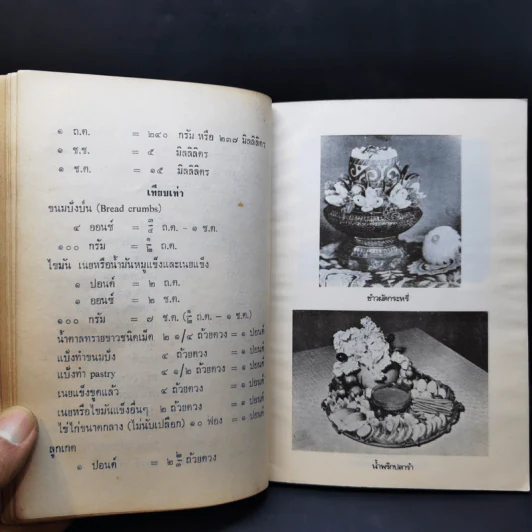 ๑ ถ.ต. = ๒๔๐ กรัม หรือ ๒๓๗ มิลลิลิตร
๑ ช.ช. = ๕ มิลลิลิตร
๑ ช.ต. = ๑๕ มิลลิลิตร
เทียบเท่า
ขนมปังป่น (Bread crumbs)
๔ ออนซ์ = ถ.ต. - ๑ ช.ต.
๑๐๐ กรัม = ถ.ต.
ไขมัน เนยหรือน้ำมันหมูแข็งและเนยแข็ง
๑ ปอนด์ = ๒ ถ.ต.
๑ ออนซ์ = ๒ ช.ต.
๑๐๐ กรัม = ๗ ช.ต. ( ถ.ต. - ๑ ช.ต.)
น้ำตาลทรายขาวชนิดเม็ด ๒ ๑/๔ ถ้วยตวง = ๑ ปอนด์
แป้งทำขนมปัง ๔ ถ้วยตวง = ๑ ปอนด์
แป้งทำ pastry ๔ ๑/๒ ถ้วยตวง = ๑ ปอนด์
เนยแข็งขูดแล้ว ๔ ถ้วยตวง = ๑ ปอนด์
เนยหรือไขมันแข็งอื่นๆ ๒ ถ้วยตวง = ๑ ปอนด์
ไข่ไก่ขนาดกลาง (ไม่นับเปลือก) ๑๐ ฟอง = ๑ ปอนด์
ลูกเกด
๑ ปอนด์ = ๒ ถ้วยตวง
ข้าวผัดกะหรี่
น้ำพริกปลาร้า